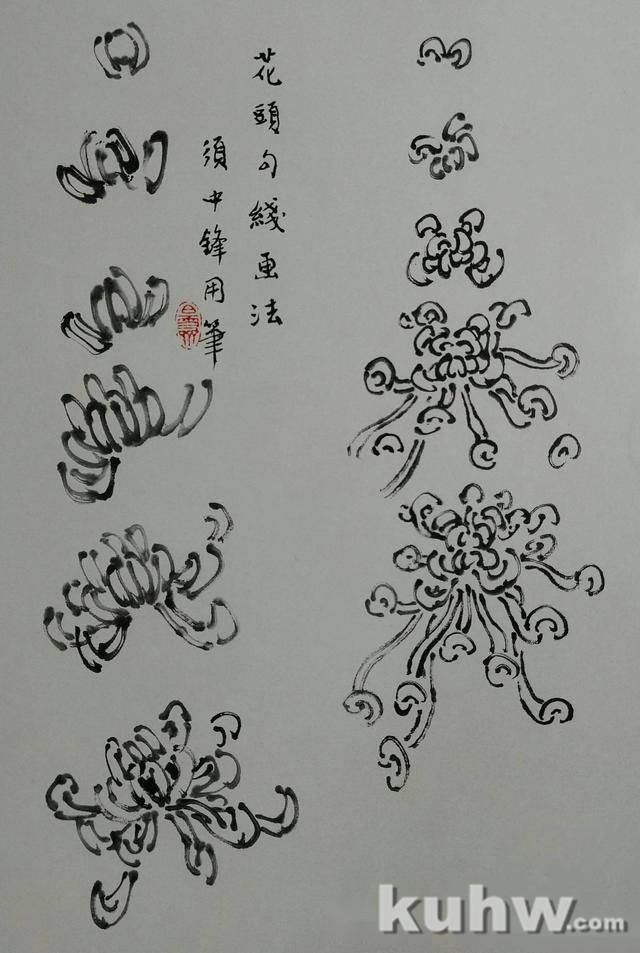 花頭勾綫画法
須中鋒用筆
kuhw.com